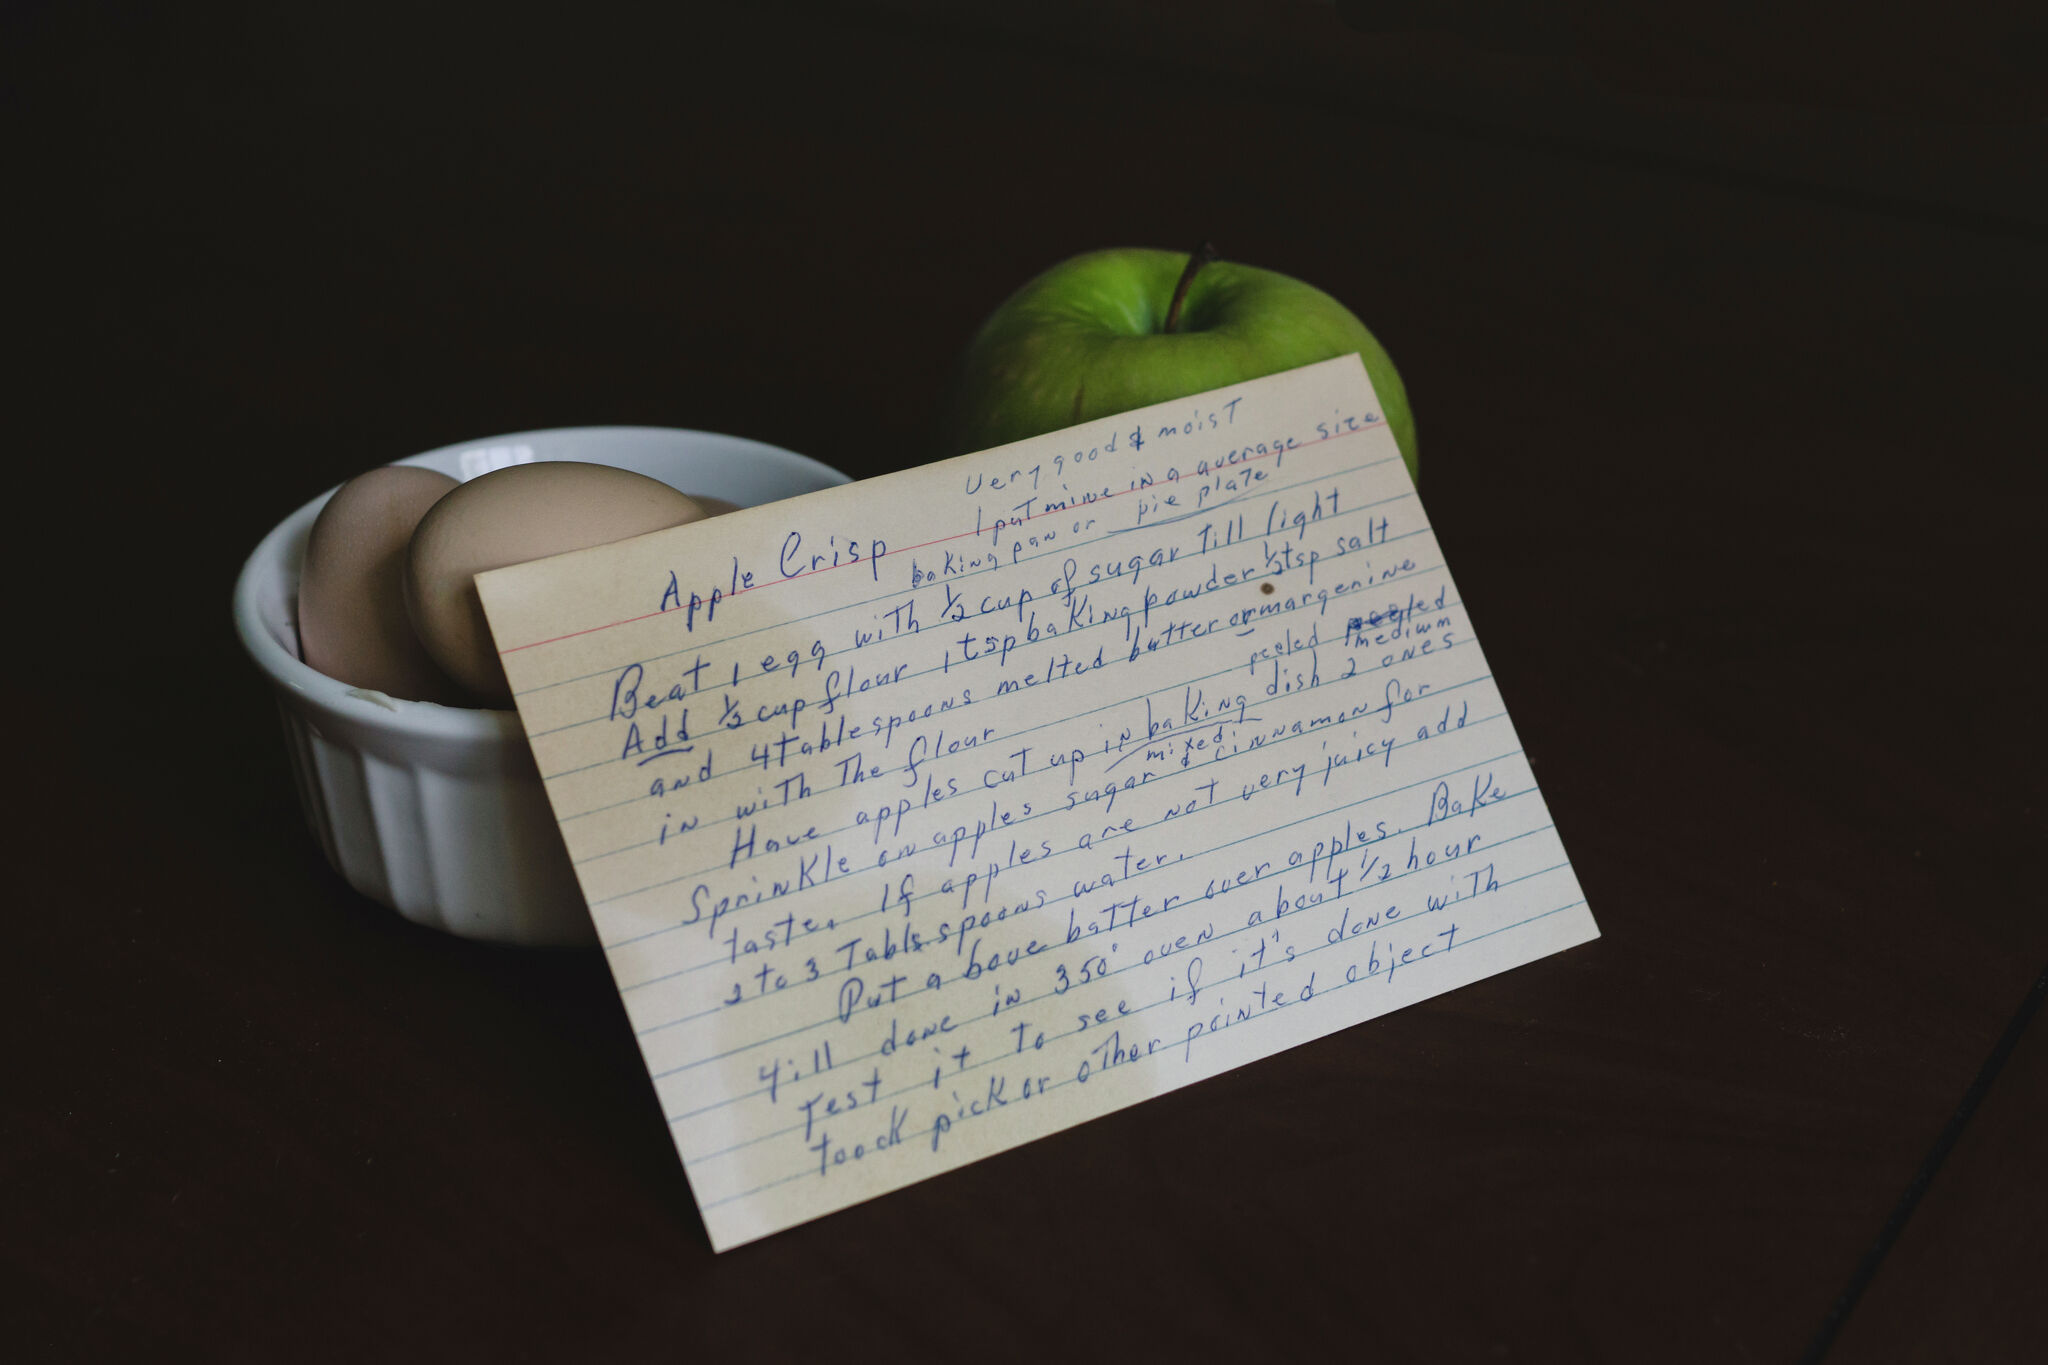 very good & moist
I put mine in a average size
baking pan or pie plate
Apple Crisp
Beat 1 egg with ½ cup of sugar till light
Add ½ cup flour 1 tsp baking powder ½ tsp salt
and 4 tablespoons melted butter or margenine
in with the flour
peeled medium
Have apples cut up in baking dish 2 ones
mixed
Sprinkle on apples sugar & cinnamon for
taste. If apples are not very juicy add
2 to 3 Tablespoons water.
Put a bove batter over apples. Bake
till done in 350° oven about ½ hour
Test it to see if it's done with
toock pick or other pointed object